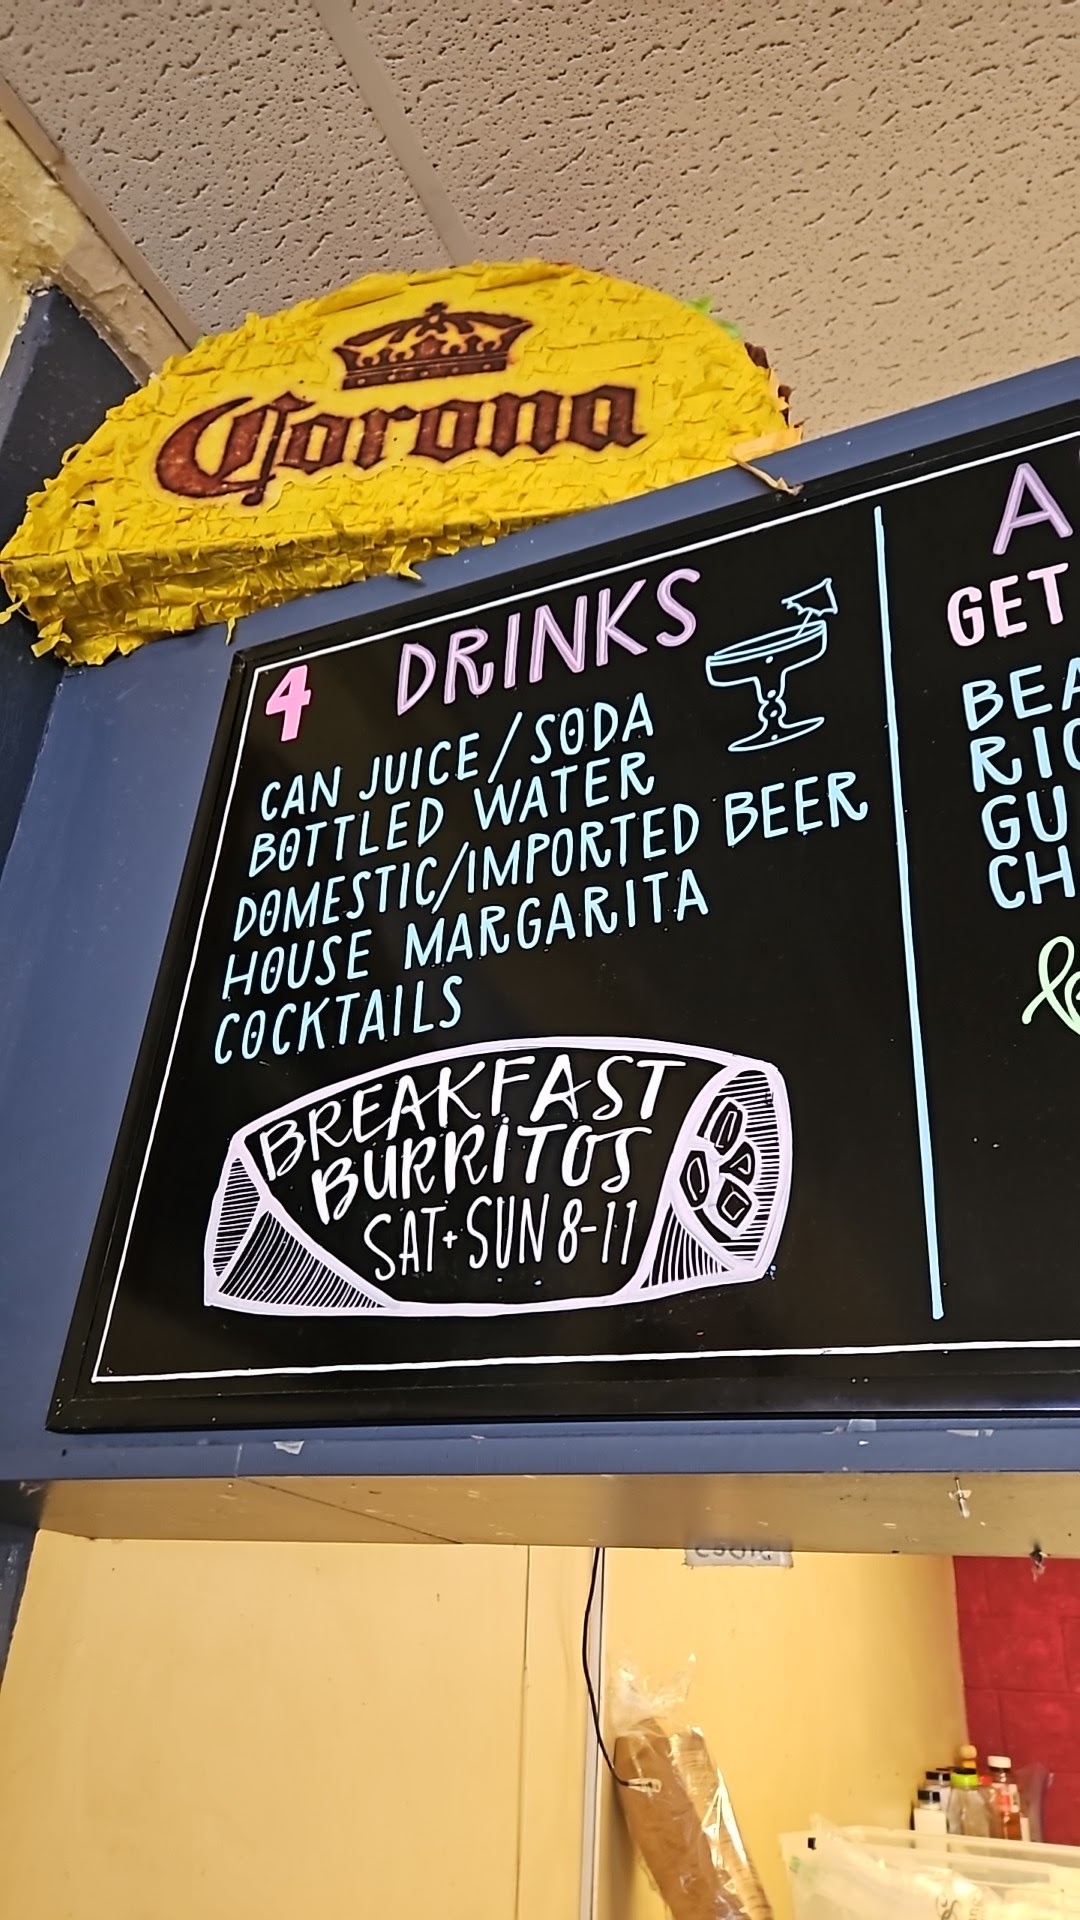 Corona
4 DRINKS
CAN JUICE/SODA
BOTTLED WATER
DOMESTIC/IMPORTED BEER
HOUSE MARGARITA
COCKTAILS
BREAKFAST
BURRITOS
SAT+SUN 8-11
A
GET
BEA
RIC
GU
CH